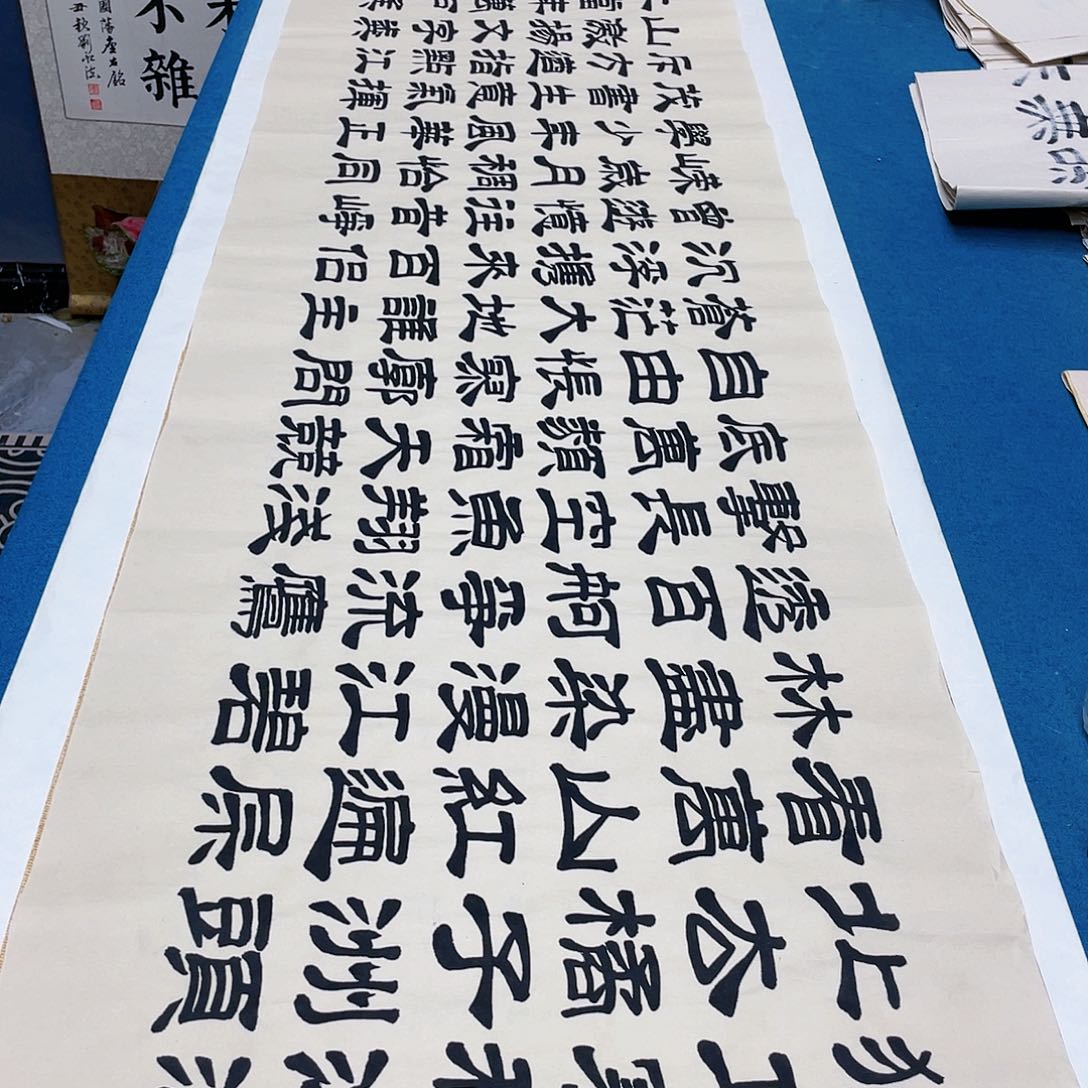 北去橘子洲頭
看萬山紅遍層
林盡染漫江碧
透百舸爭流鷹
擊長空魚翔淺
底萬類霜天競
自由悵寥廓問
蒼茫大地誰主
沉浮攜來百侶
曾遊憶往昔崢
嶸歲月稠恰同
學少年風華正
茂書生意氣揮
斥方遒指點江
山激揚文字糞
不雜
國藩座右銘
丑秋劉